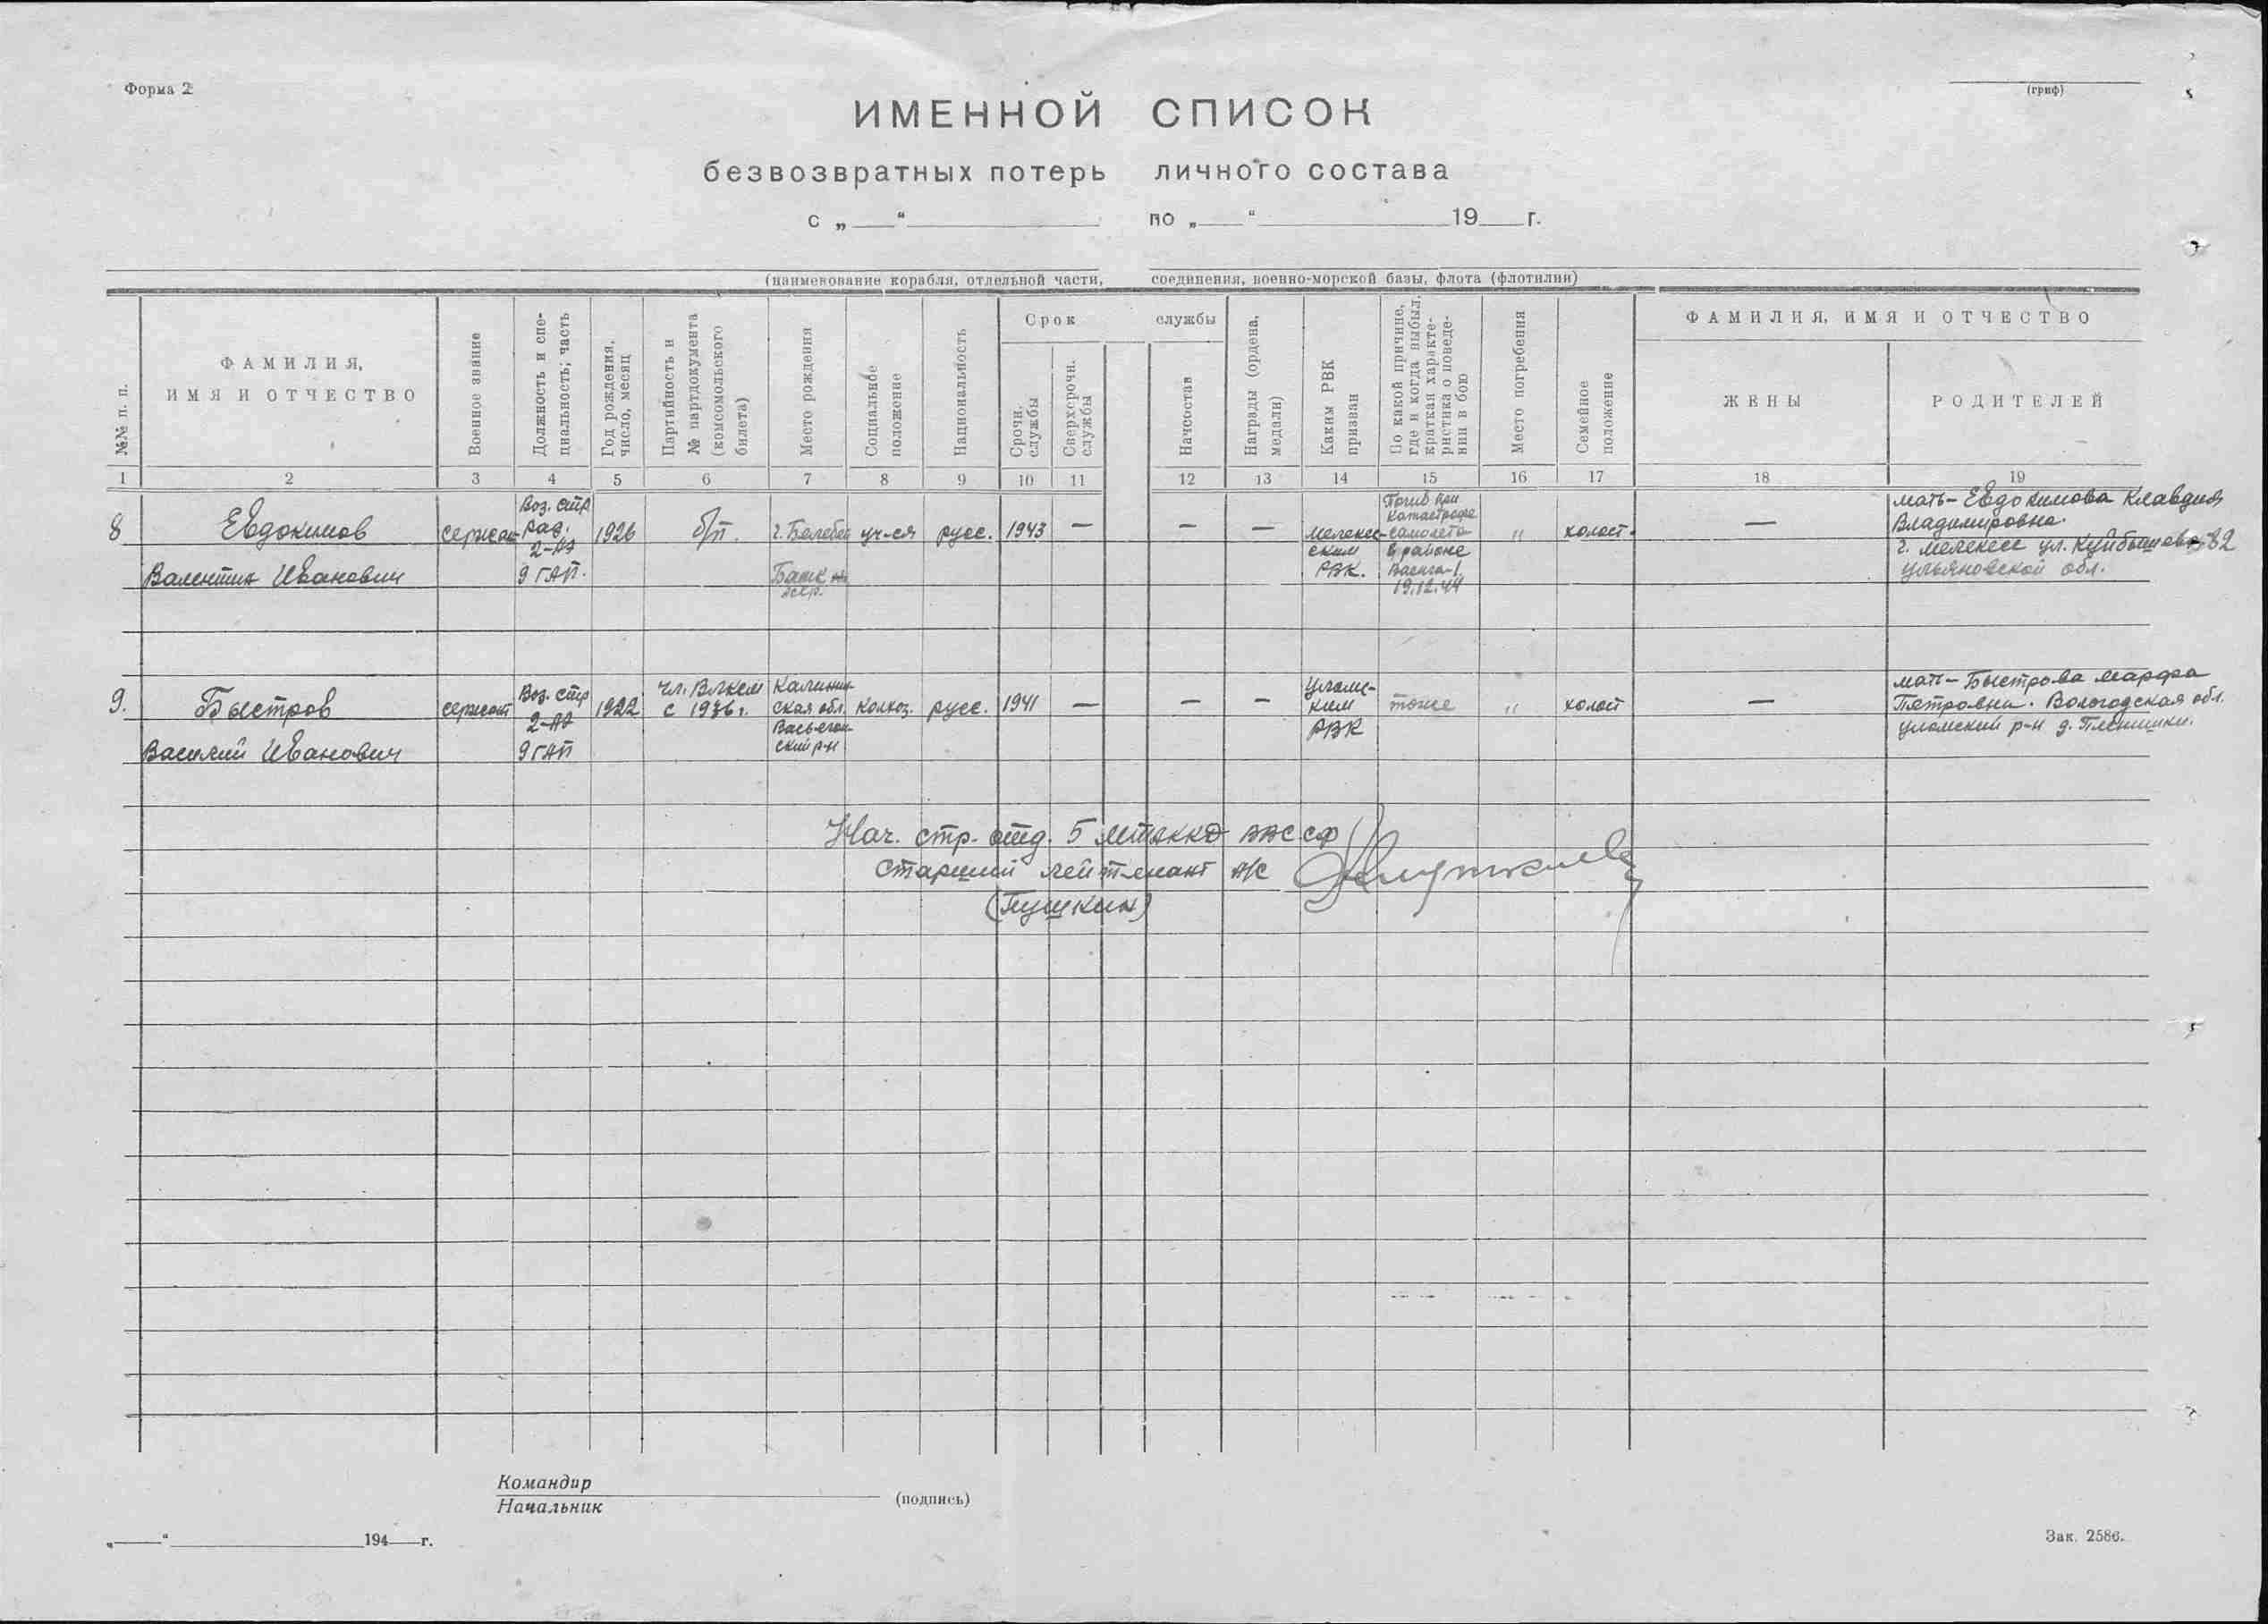 Форма 2
(гриф)
ИМЕННОЙ СПИСОК
безвозвратных потерь личного состава
с „___“ ___________ по „___“ ___________ 19___г.
(наименование корабля, отдельной части, соединения, военно-морской базы, флота (флотилии)
№№ п. п.
ФАМИЛИЯ,
ИМЯ И ОТЧЕСТВО
Военное звание
Должность и спе-
циальность; часть
Год рождения,
число, месяц
Партийность и
№ партдокумента
(комсомольского
билета)
Место рождения
Социальное
положение
Национальность
Срок службы
Срочн.
службы
Сверхсрочн.
службы
Начсостав
Награды (ордена,
медали)
Каким РВК
призван
По какой причине,
где и когда выбыл,
краткая характе-
ристика о поведе-
нии в бою
Место погребения
Семейное
положение
ФАМИЛИЯ, ИМЯ И ОТЧЕСТВО
ЖЕНЫ
РОДИТЕЛЕЙ
1 2 3 4 5 6 7 8 9 10 11 12 13 14 15 16 17 18 19
8
Евдокимов
Валентин Иванович
сержан
Воз. стр
рад.
2-АЭ
9 ГАП.
1926
б/п.
г. Белебей
Башк
АССР.
уч-ся
русс.
1943
—
—
—
мелекес-
ским
РВК.
Погиб при
катастрофе
самолета
в районе
Ваенга-1.
19.12.44
"
холост.
—
мать - Евдокимова Клавдия
Владимировна.
г. Мелекесс ул. Куйбышева-82
Ульяновской обл.
9.
Быстров
Василий Иванович
сержант
Воз. стр
2-АЭ
9 ГАП
1922
чл. ВЛКСМ
с 1936 г.
Калинин-
ская обл.
Весьегон-
ский р-н
Колхоз.
русс.
1941
—
—
—
Уломс-
ким
РВК
тоже
"
холост
—
мать - Быстрова Марфа
Петровна. Вологодская обл.
Уломский р-н д.
Нач. стр. отд. 5 МТАККД ВВС СФ
старший лейтенант А/С
(Пушкин)
Командир
Начальник
(подпись)
„___“ ___________ 194___г.
Зак. 2586.